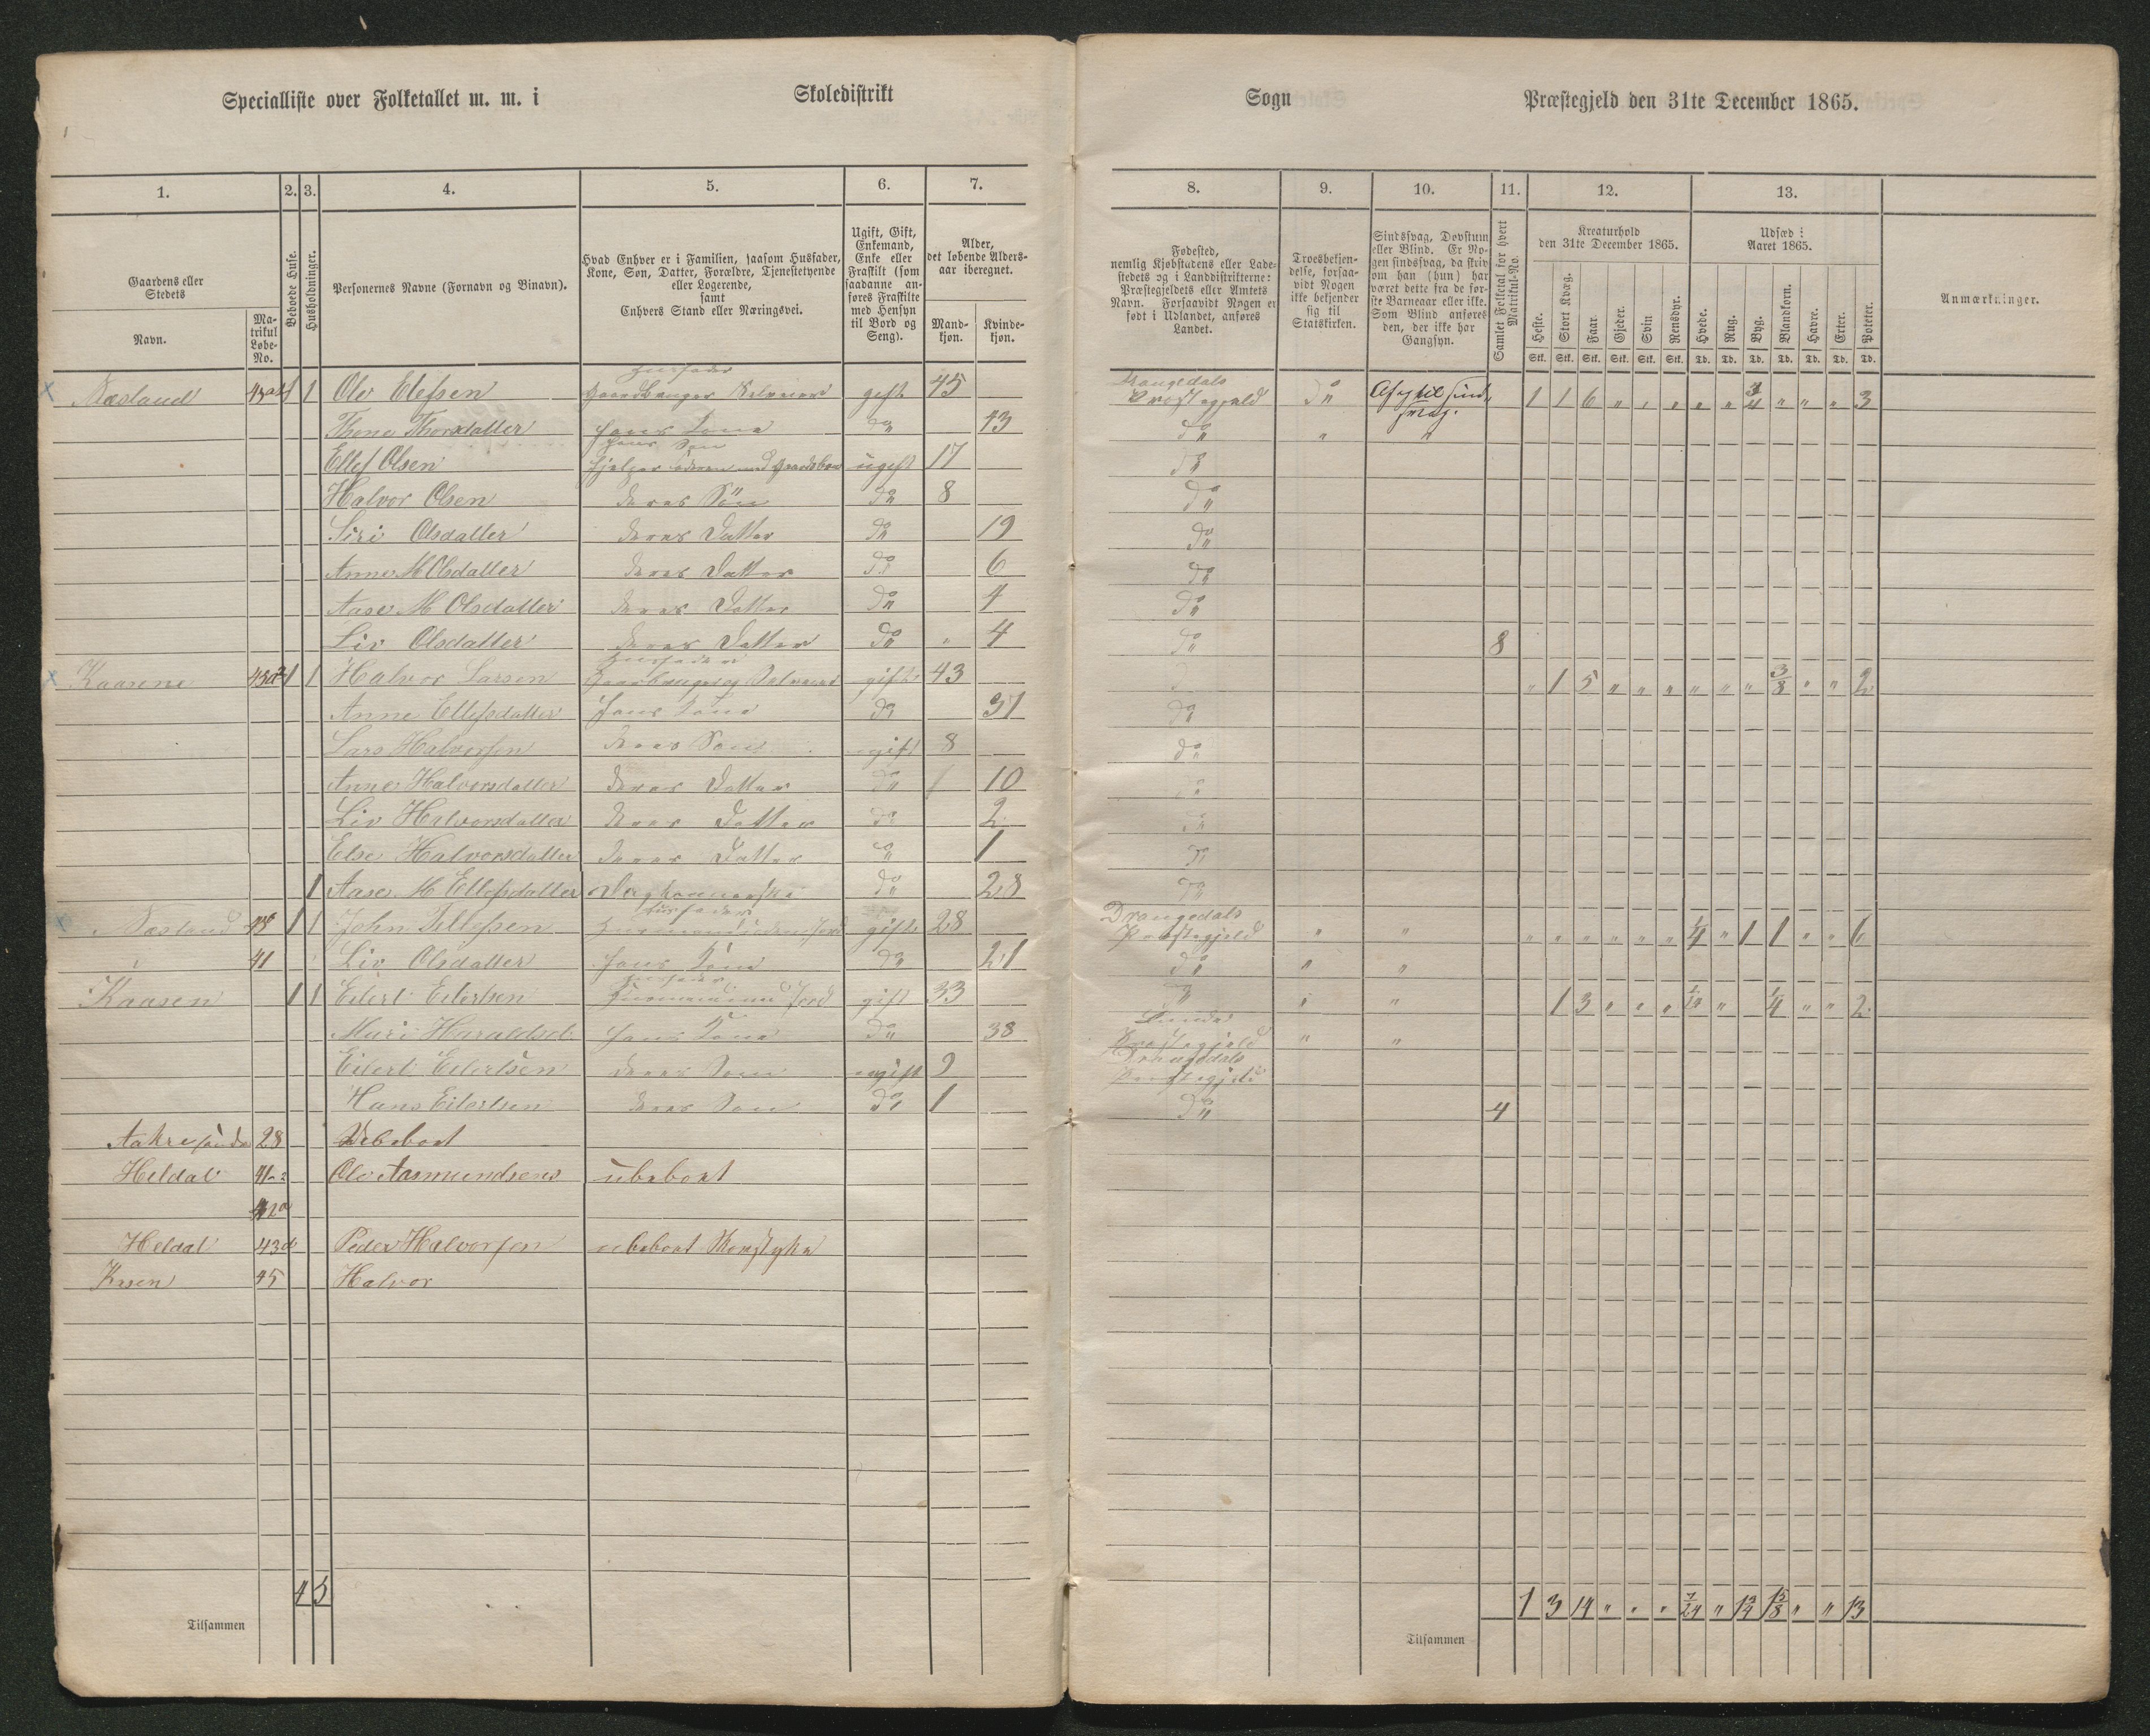 Specialliste over Folketallet m. m. i Skoledistrikt Sogn Præstegjeld den 31te December 1865.
1. 2. 3. 4. 5. 6. 7. 8. 9. 10. 11. 12. 13.
Gaardens eller Stedets
Navn.
Matrikul Løbe-No.
Beboede Huse.
Husholdninger.
Personernes Navne (Fornavn og Binavn).
Hvad Enhver er i Familien, saasom Husfader, Kone, Søn, Datter, Forældre, Tjenestetyende eller Logerende, samt Enhvers Stand eller Næringsvei.
Ugift, Gift, Enkemand, Enke eller Fraskilt (som saadanne anføres Fraskilte med Hensyn til Bord og Seng).
Alder, det løbende Alders-aar iberegnet.
Mand-kjøn.
Kvinde-kjøn.
Fødested, nemlig Kjøbstadens eller Ladestedets og i Landdistrikterne: Præstegjeldets eller Amtets Navn. Forsaavidt Nogen er født i Udlandet, anføres Landet.
Troesbekjendelse, forsaavidt Nogen ikke bekjender sig til Statskirken.
Sindssvag, Døvstum eller Blind. Er Nogen sindssvag, da skriv om han (hun) har været dette fra de første Barneaar eller ikke. Som Blind anføres den, der ikke har Gangsyn.
Samlet Folketal for hvert Matrikul-No.
Kreaturhold den 31te December 1865.
Heste. Stort Kvæg. Faar. Gjeder. Svin Rensdyr.
Stk. Stk. Stk. Stk. Stk. Stk.
Udsæd i Aaret 1865.
Hvede. Rug. Byg. Blandkorn. Havre. Erter. Poteter.
Td. Td. Td. Td. Td. Td. Td.
Anmærkninger.
Husfader Drangedals
Næsland 1 1 Olv Elefsen gift 45 Præstegjeld do 1 1 6 " " " " " 3/4 " " " 3
Thone Thorsdatter Hans Kone do 43 do " "
Hans Søn
Ellef Olsen ugift 17 do
Halvor Olsen deres Søn do 8 do
Siri Olsdatter deres Datter do 19 do
Anne M Olsdatter deres Datter do 6 do
Aase M Olsdatter deres Datter do 4 do
Liv Olsdatter deres Datter do " 4 do 8
Husfader
Kaasene 1 1 Halvor Larsen gift 43 " 1 5 " " " " " " 3/8 " " 2
Anne Ellefsdatter Hans Kone do 31 do
Lars Halvorsen deres Søn ugift 8 do
Anne Halvorsdatter deres Datter do 10 do
Liv Halvorsdatter deres Datter do 2 do
Else Halvorsdatter deres Datter do 1 do
1 Aase M Ellefsdatter do 28 do
Husfader Drangedals
Næsland 1 1 John Tellefsen gift 28 Præstegjeld " " " " " " " " 1/4 " 1 1 " " 6
41 Liv Olsdatter Hans Kone do 21 do " "
Husfader
Kaasen 1 1 Eilert Eilertsen Husmand med Jord gift 33 do " " 1 3 " " " " 1/4 " " 2
Muri Haraldsd. Hans Kone do 38 Præstegjeld " "
Drangedals
Eilert Eilertsen deres Søn ugift 9 Præstegjeld
Hans Eilertsen deres Søn do 1 do 4
28 Ubeboet
Heldal Olv Aasmundsen ubeboet
42a
Heldal 43d Peder Halvorsen ubeboet
Kasen 45 Halvor
4 5
Tilsammen
1 3 14 " " " 7/24 " 1 3/4 1 5/8 " " 13
Tilsammen